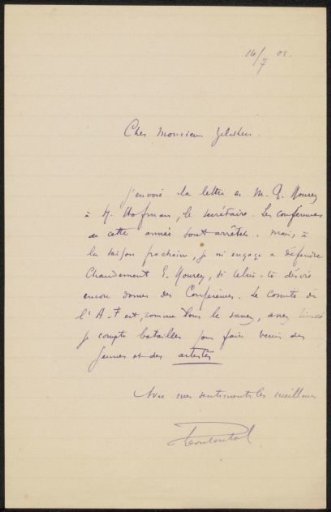 16/7 01.
Cher Monsieur Zilcken.
J'envoie la lettre de M. G. Mourey
à H. Hofman, le secrétaire. Les conférences
de cette année sont arrêtées. Mais, à
la saison prochaine, je m'engage à défendre
chaudement G. Mourey, si celui-ci désire
encore donner des Conférences. Le comité de
l'A-F est, comme vous le savez, assez
je compte batailler pour faire venir des
jeunes et des artistes
Avec mes sentiments les meilleurs